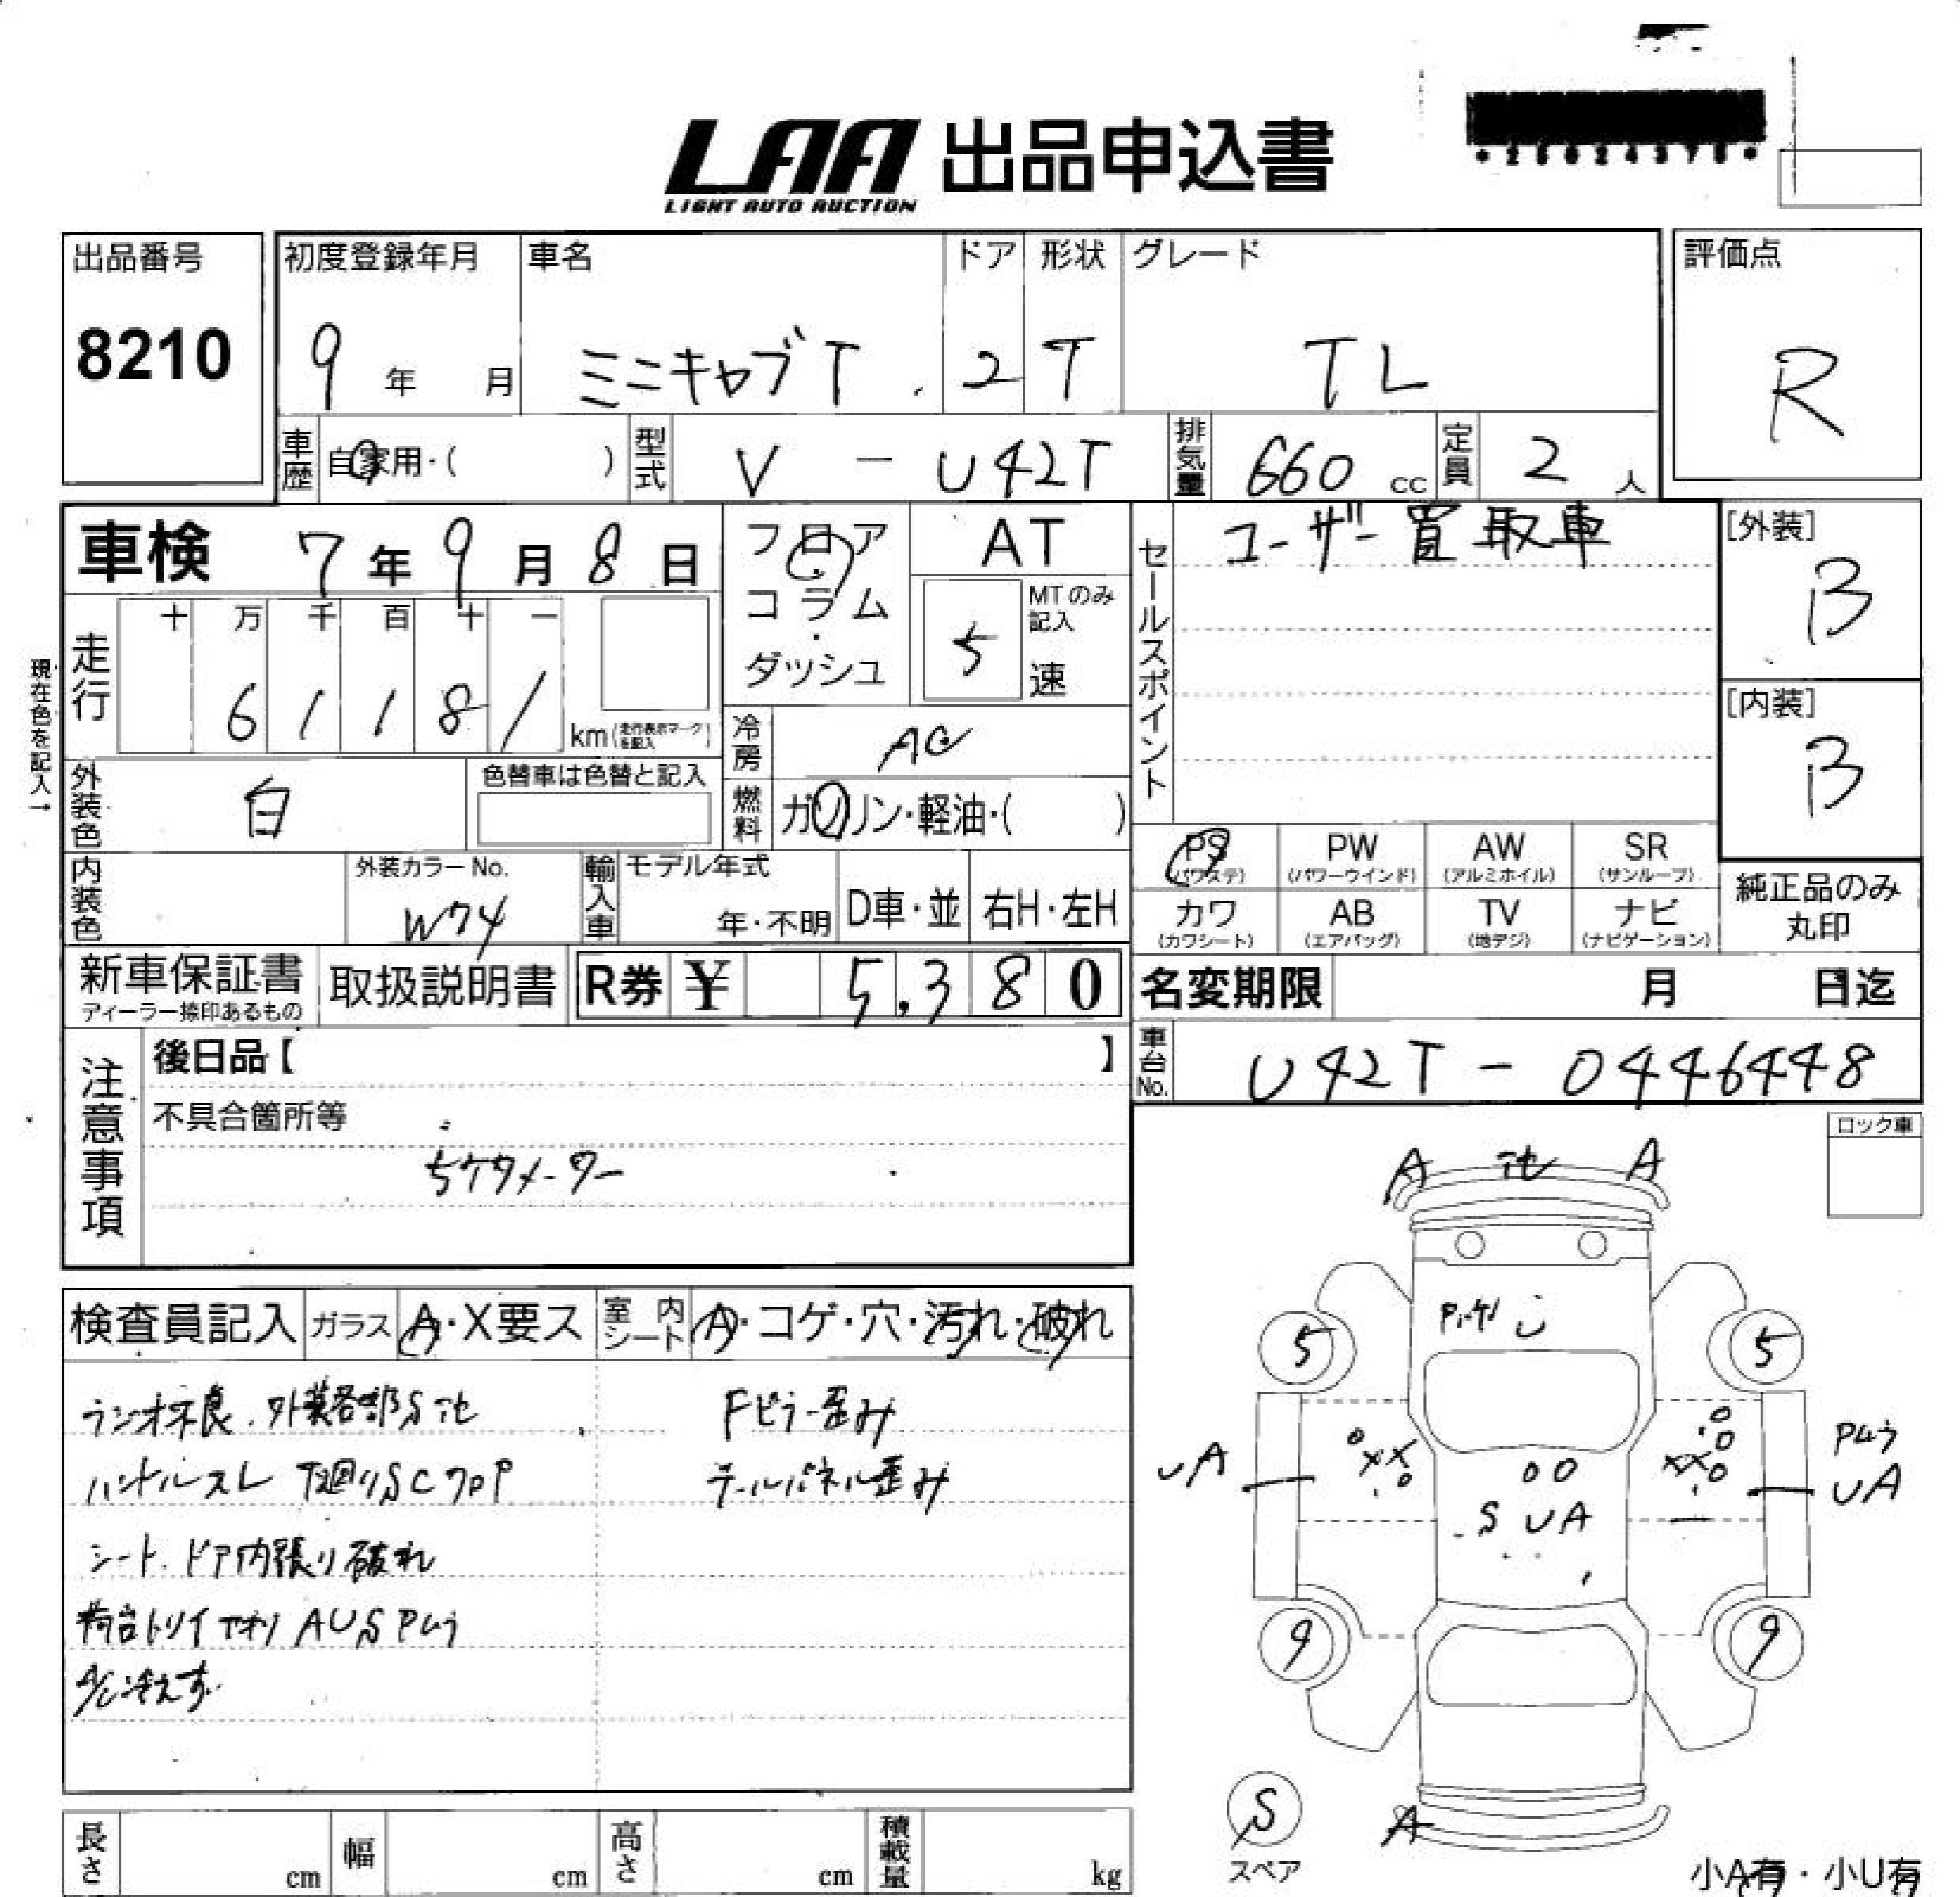 *25024378*
LAA 出品申込書
LIGHT AUTO AUCTION
出品番号
8210
初度登録年月
9 年 月
車名
ミニキャブT
ドア
2
形状
T
グレード
TL
評価点
R
車歴 自家用・( )
型式 V - U42T
排気量 660 cc
定員 2 人
車検 7 年 9 月 8 日
フロア・コラム・ダッシュ
AT
MTのみ記入
5 速
セールスポイント
ユーザー買取車
[外装]
B
[内装]
B
現在色を記入→
走行
十 万 千 百 十 一
6 1 1 8 1
km (走行表示マークを記入)
冷房 AC
燃料 ガソリン・軽油・( )
外装色 白
色替車は色替と記入
内装色
外装カラーNo.
W74
輸入車
モデル年式
年・不明
D車・並
右H・左H
PS (パワステ)
PW (パワーウインド)
AW (アルミホイル)
SR (サンルーフ)
カワ (カワシート)
AB (エアバッグ)
TV (地デジ)
ナビ (ナビゲーション)
純正品のみ
丸印
新車保証書
ディーラー捺印あるもの
取扱説明書
R券 ¥ 5,380
名変期限 月 日迄
車台No. U42T - 0446448
注意事項
後日品【 】
不具合箇所等
5ケタメーター
ロック車
検査員記入
ガラス A・X要ス
室内シート A・コゲ・穴・汚れ・破れ
ラジオ不良.外装各部S
Fピラー歪み
ハンドルスレ 下廻りSC
テールパネル歪み
シート.ドア内張り破れ
荷台トリイアオリ AUSPムラ
A/C冷えず
A A
5 5
UA
PムラUA
S UA
9 9
S
スペア
A
長さ cm
幅 cm
高さ cm
積載量 kg
小A有・小U有